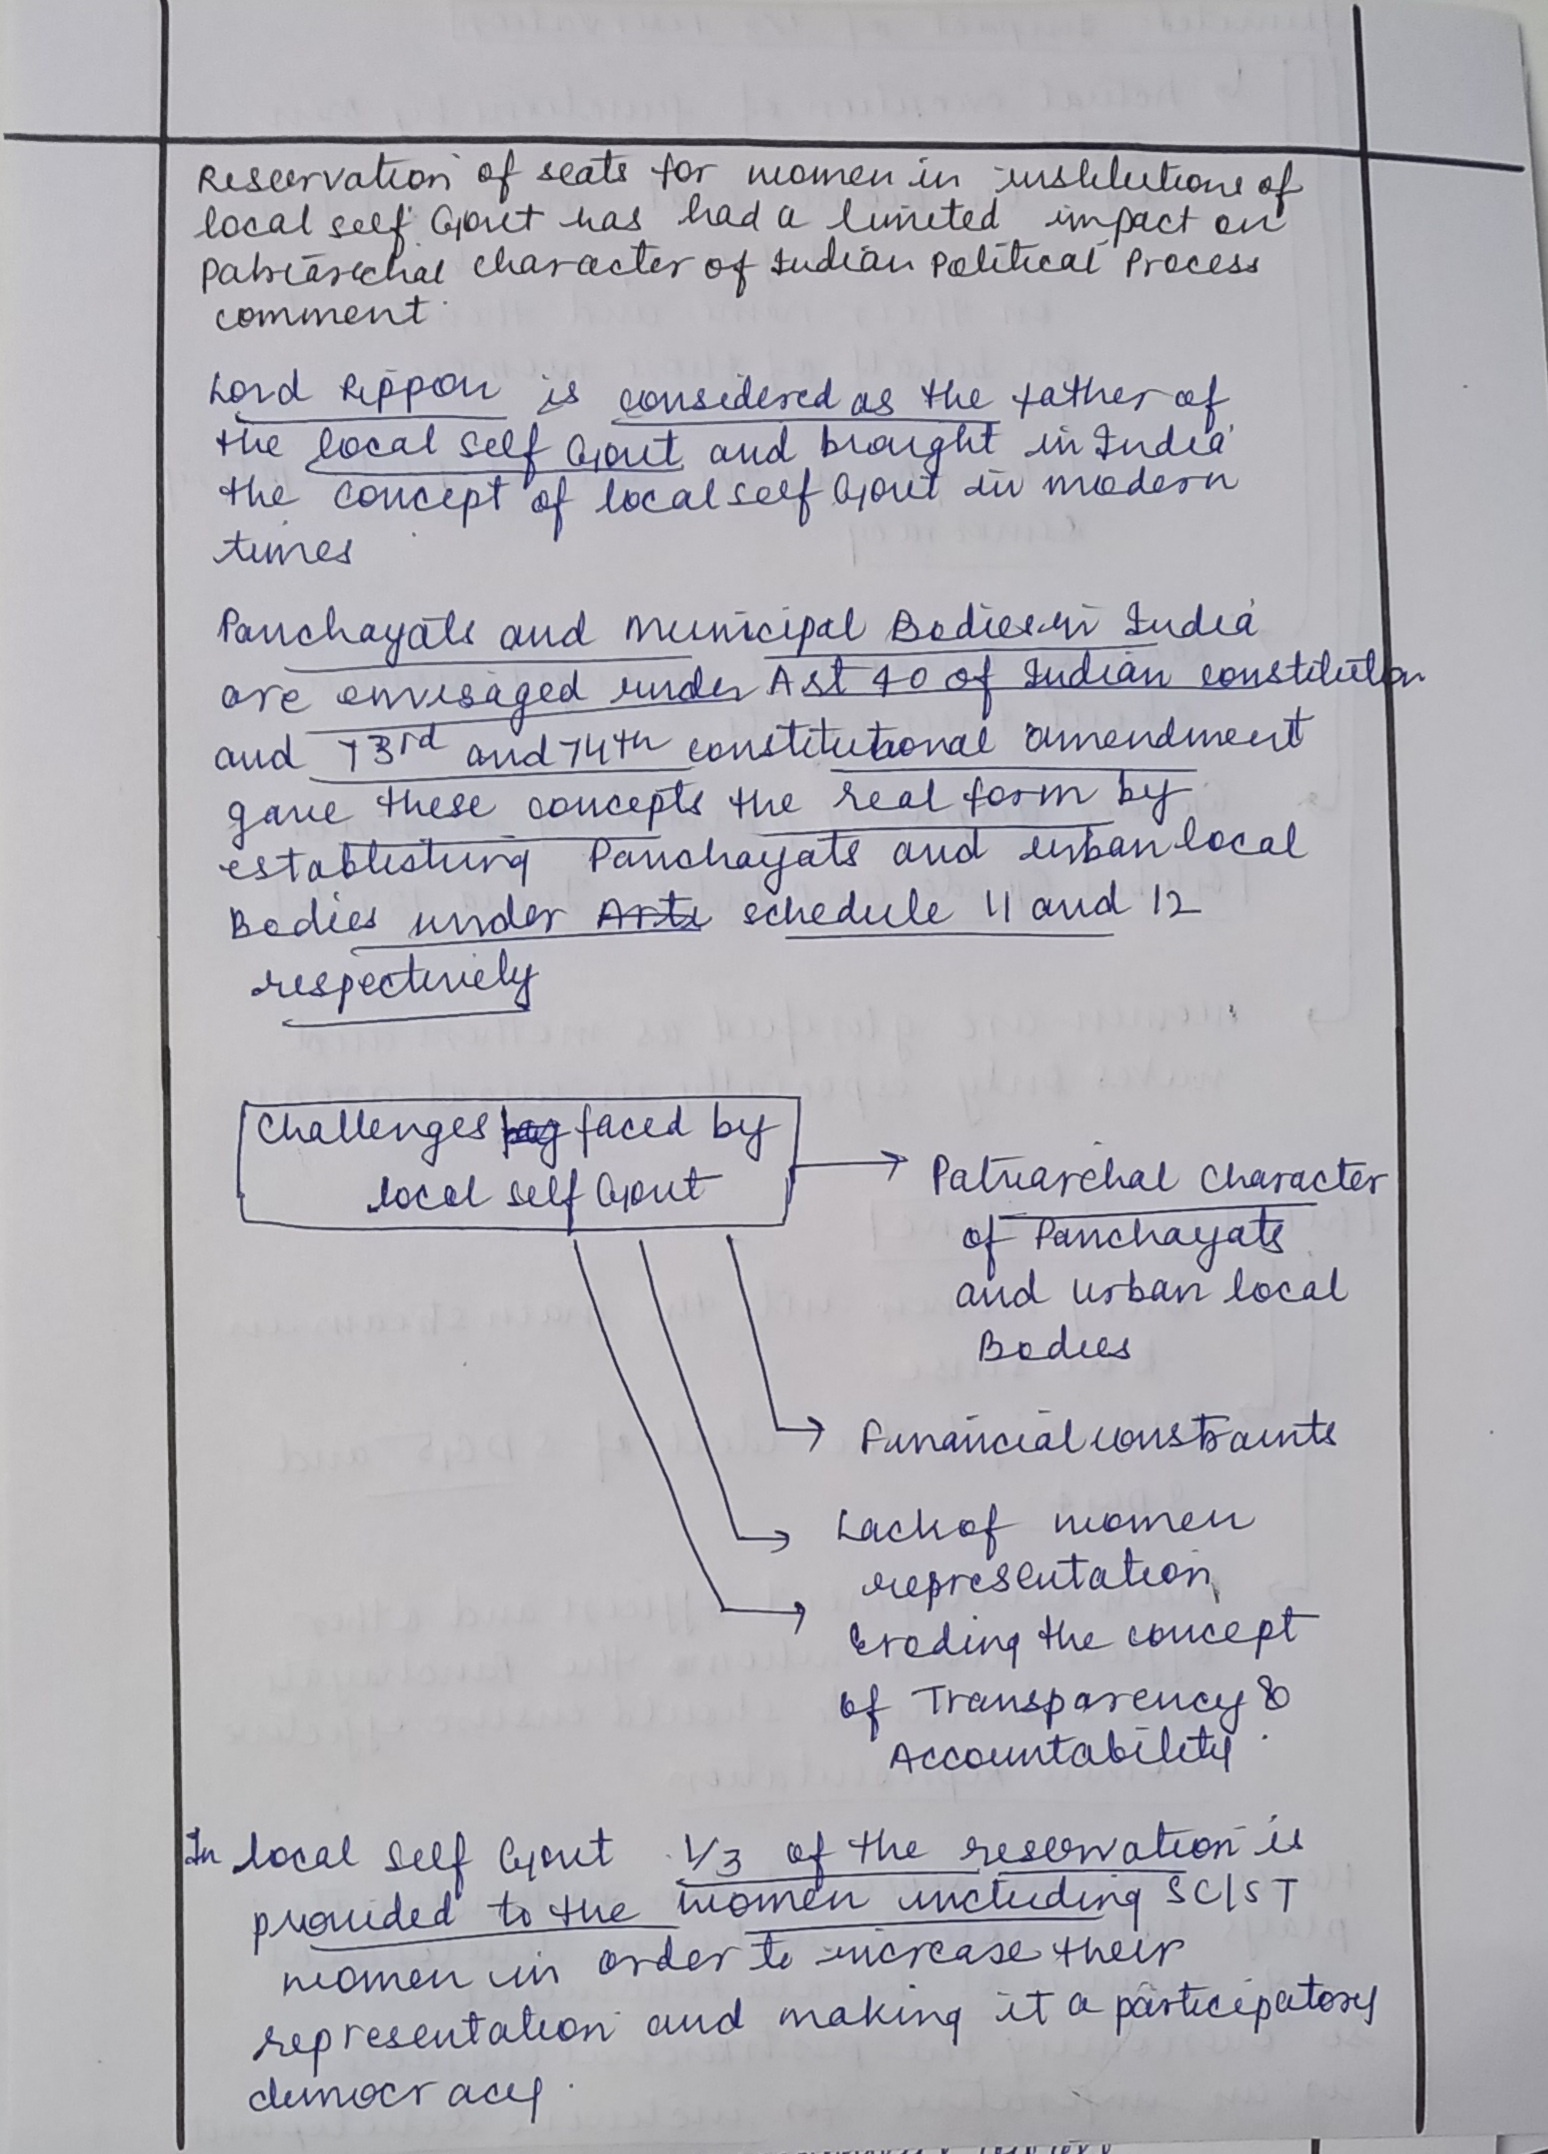 Reservation of seats for women in institutions of
local self Govt has had a limited impact on
Patriarchal character of Indian Political Process
comment.
Lord Rippon is considered as the father of
the local self Govt and brought in India
the concept of local self Govt in modern
times
Panchayats and Municipal Bodies in India
are envisaged under Art 40 of Indian constitution
and 73rd and 74th constitutional amendment
gave these concepts the real form by
establishing Panchayats and urban local
Bodies under Arti schedule 11 and 12
respectively
Challenges faced by
local self Govt
Patriarchal Character
of Panchayats
and urban local
Bodies
Financial constraints
Lack of women
representation
Eroding the concept
of Transparency &
Accountability.
In local self Govt 1/3 of the reservation is
provided to the women including SC/ST
women in order to increase their
representation and making it a participatory
democracy.